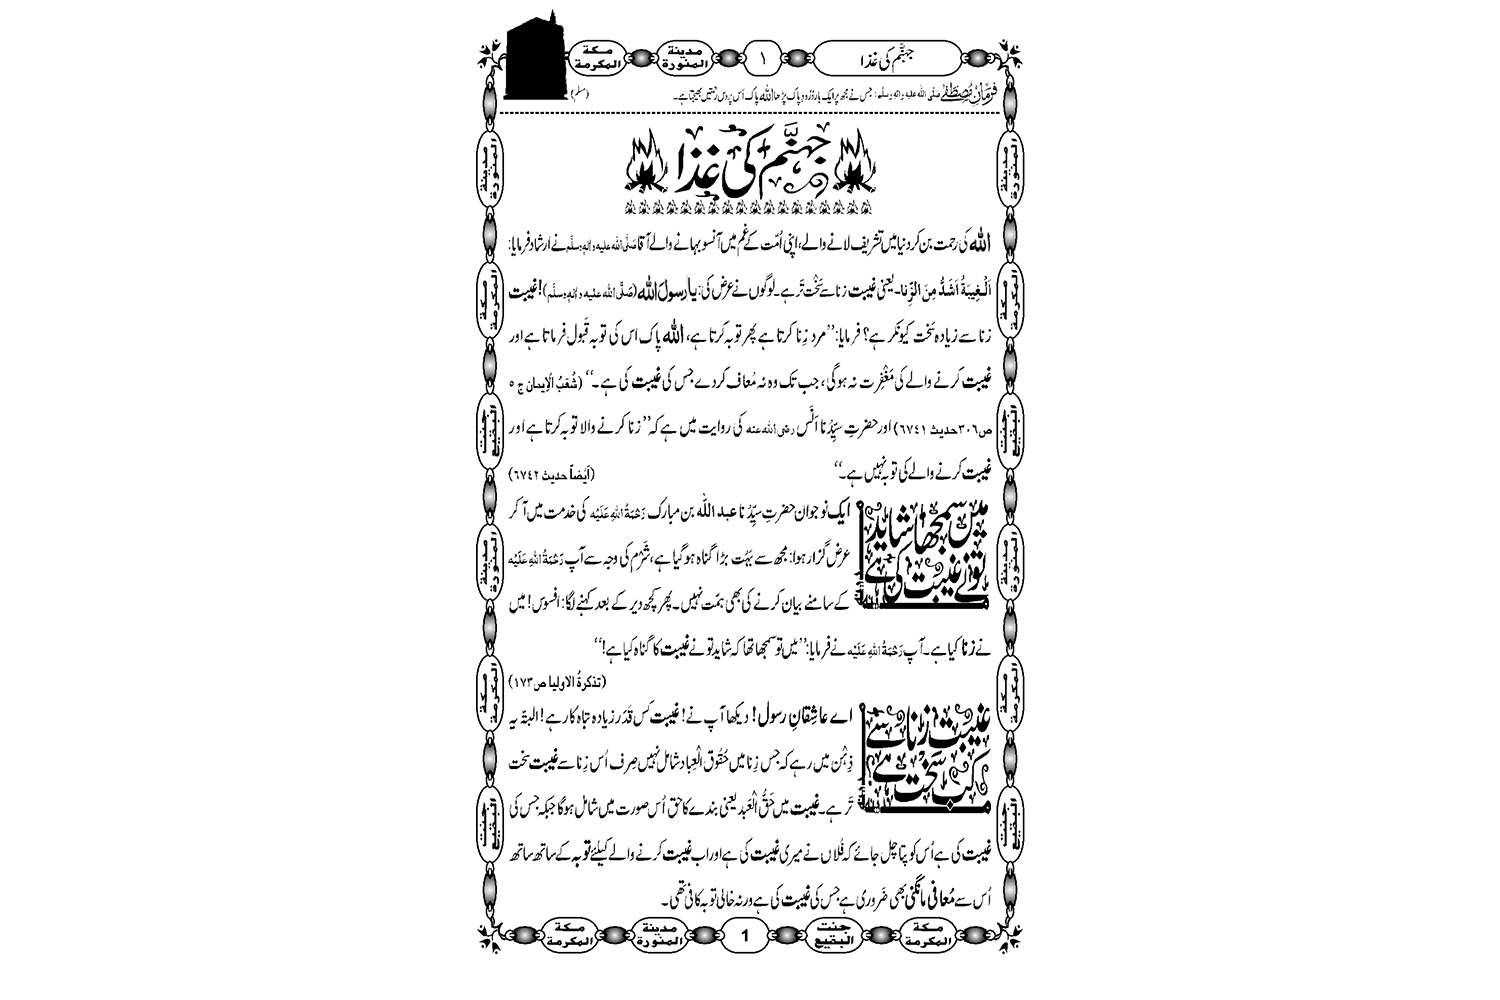 جہنَّم کی غذا
۱
مدینة المنورة
مکة المکرمة
فرمانِ مُصطَفٰے صلَّی اللہ علیہ واٰلہٖ وسلَّم: جس نے مجھ پر ایک بار دُرُودِ پاک پڑھا اللہ پاک اُس پر دس رَحمتیں بھیجتا ہے۔ (مسلم)
جہنَّم کی غذا
اللہ کی رحمت بن کر دنیا میں تشریف لانے والے، اپنی اُمّت کے غم میں آنسو بہانے والے آقا صَلَّی اللہ علیہ واٰلہٖ وسلَّم نے ارشاد فرمایا:
اَلْغِیبَةُ اَشَدُّ مِنَ الزِّنا۔ یعنی غیبت زنا سے سَخْت تَر ہے۔ لوگوں نے عرض کی: یا رسولَ اللہ (صَلَّی اللہ علیہ واٰلہٖ وسلَّم)! غیبت
زنا سے زیادہ سَخت کیونکر ہے؟ فرمایا: ’’مرد زِنا کرتا ہے پھر توبہ کرتا ہے، اللہ پاک اس کی توبہ قَبول فرماتا ہے اور
غیبت کرنے والے کی مَغْفِرت نہ ہوگی، جب تک وہ نہ مُعاف کر دے جس کی غیبت کی ہے۔‘‘ (شُعَبُ الْاِیمان ج ۵
ص۳۰۶ حدیث ۶۷۴۱) اور حضرتِ سیِّدُنا اَنَس رضی اللہ عنہ کی روایت میں ہے کہ ’’زنا کرنے والا توبہ کرتا ہے اور
غیبت کرنے والے کی توبہ نہیں ہے۔‘‘ (اَیْضاً حدیث ۶۷۴۲)
میں سمجھا شاید
تو نے غیبت کی ہے
ایک نوجوان حضرتِ سیِّدُنا عبد اللہ بن مبارک رَحْمَةُ اللہِ عَلَیْہ کی خدمت میں آ کر
عرض گزار ہوا: مجھ سے بَہُت بڑا گناہ ہو گیا ہے، شَرْم کی وجہ سے آپ رَحْمَةُ اللہِ عَلَیْہ
کے سامنے بیان کرنے کی بھی ہمّت نہیں۔ پھر کچھ دیر کے بعد کہنے لگا: افسوس! میں
نے زنا کیا ہے۔ آپ رَحْمَةُ اللہِ عَلَیْہ نے فرمایا: ’’میں تو سمجھا تھا کہ شاید تو نے غیبت کا گناہ کیا ہے!‘‘
(تذکرةُ الاولیا ص۱۷۳)
غیبت زنا سے
کب سَخت ہے؟
اے عاشقانِ رسول! دیکھا آپ نے! غیبت کس قَدَر زیادہ تباہ کار ہے! البتّہ یہ
ذِہْن میں رہے کہ جس زِنا میں حُقُوق الْعِباد شامل نہیں صِرف اُس زِنا سے غیبت سخت
تَر ہے۔ غیبت میں حَقُّ الْعَبد یعنی بندے کا حق اُس صورت میں شامل ہو گا جبکہ جس کی
غیبت کی ہے اُس کو پتا چل جائے کہ فُلاں نے میری غیبت کی ہے اور اب غیبت کرنے والے کیلئے توبہ کے ساتھ ساتھ
اُس سے مُعافی مانگنی بھی ضَروری ہے جس کی غیبت کی ہے ورنہ خالی توبہ کافی تھی۔
مدینة المنورة
مکة المکرمة
جنت البقیع
مدینة المنورة
مکة المکرمة
جنت البقیع
مدینة المنورة
مکة المکرمة
جنت البقیع
مدینة المنورة
مکة المکرمة
جنت البقیع
مکة المکرمة
جنت البقیع
1
مدینة المنورة
مکة المکرمة